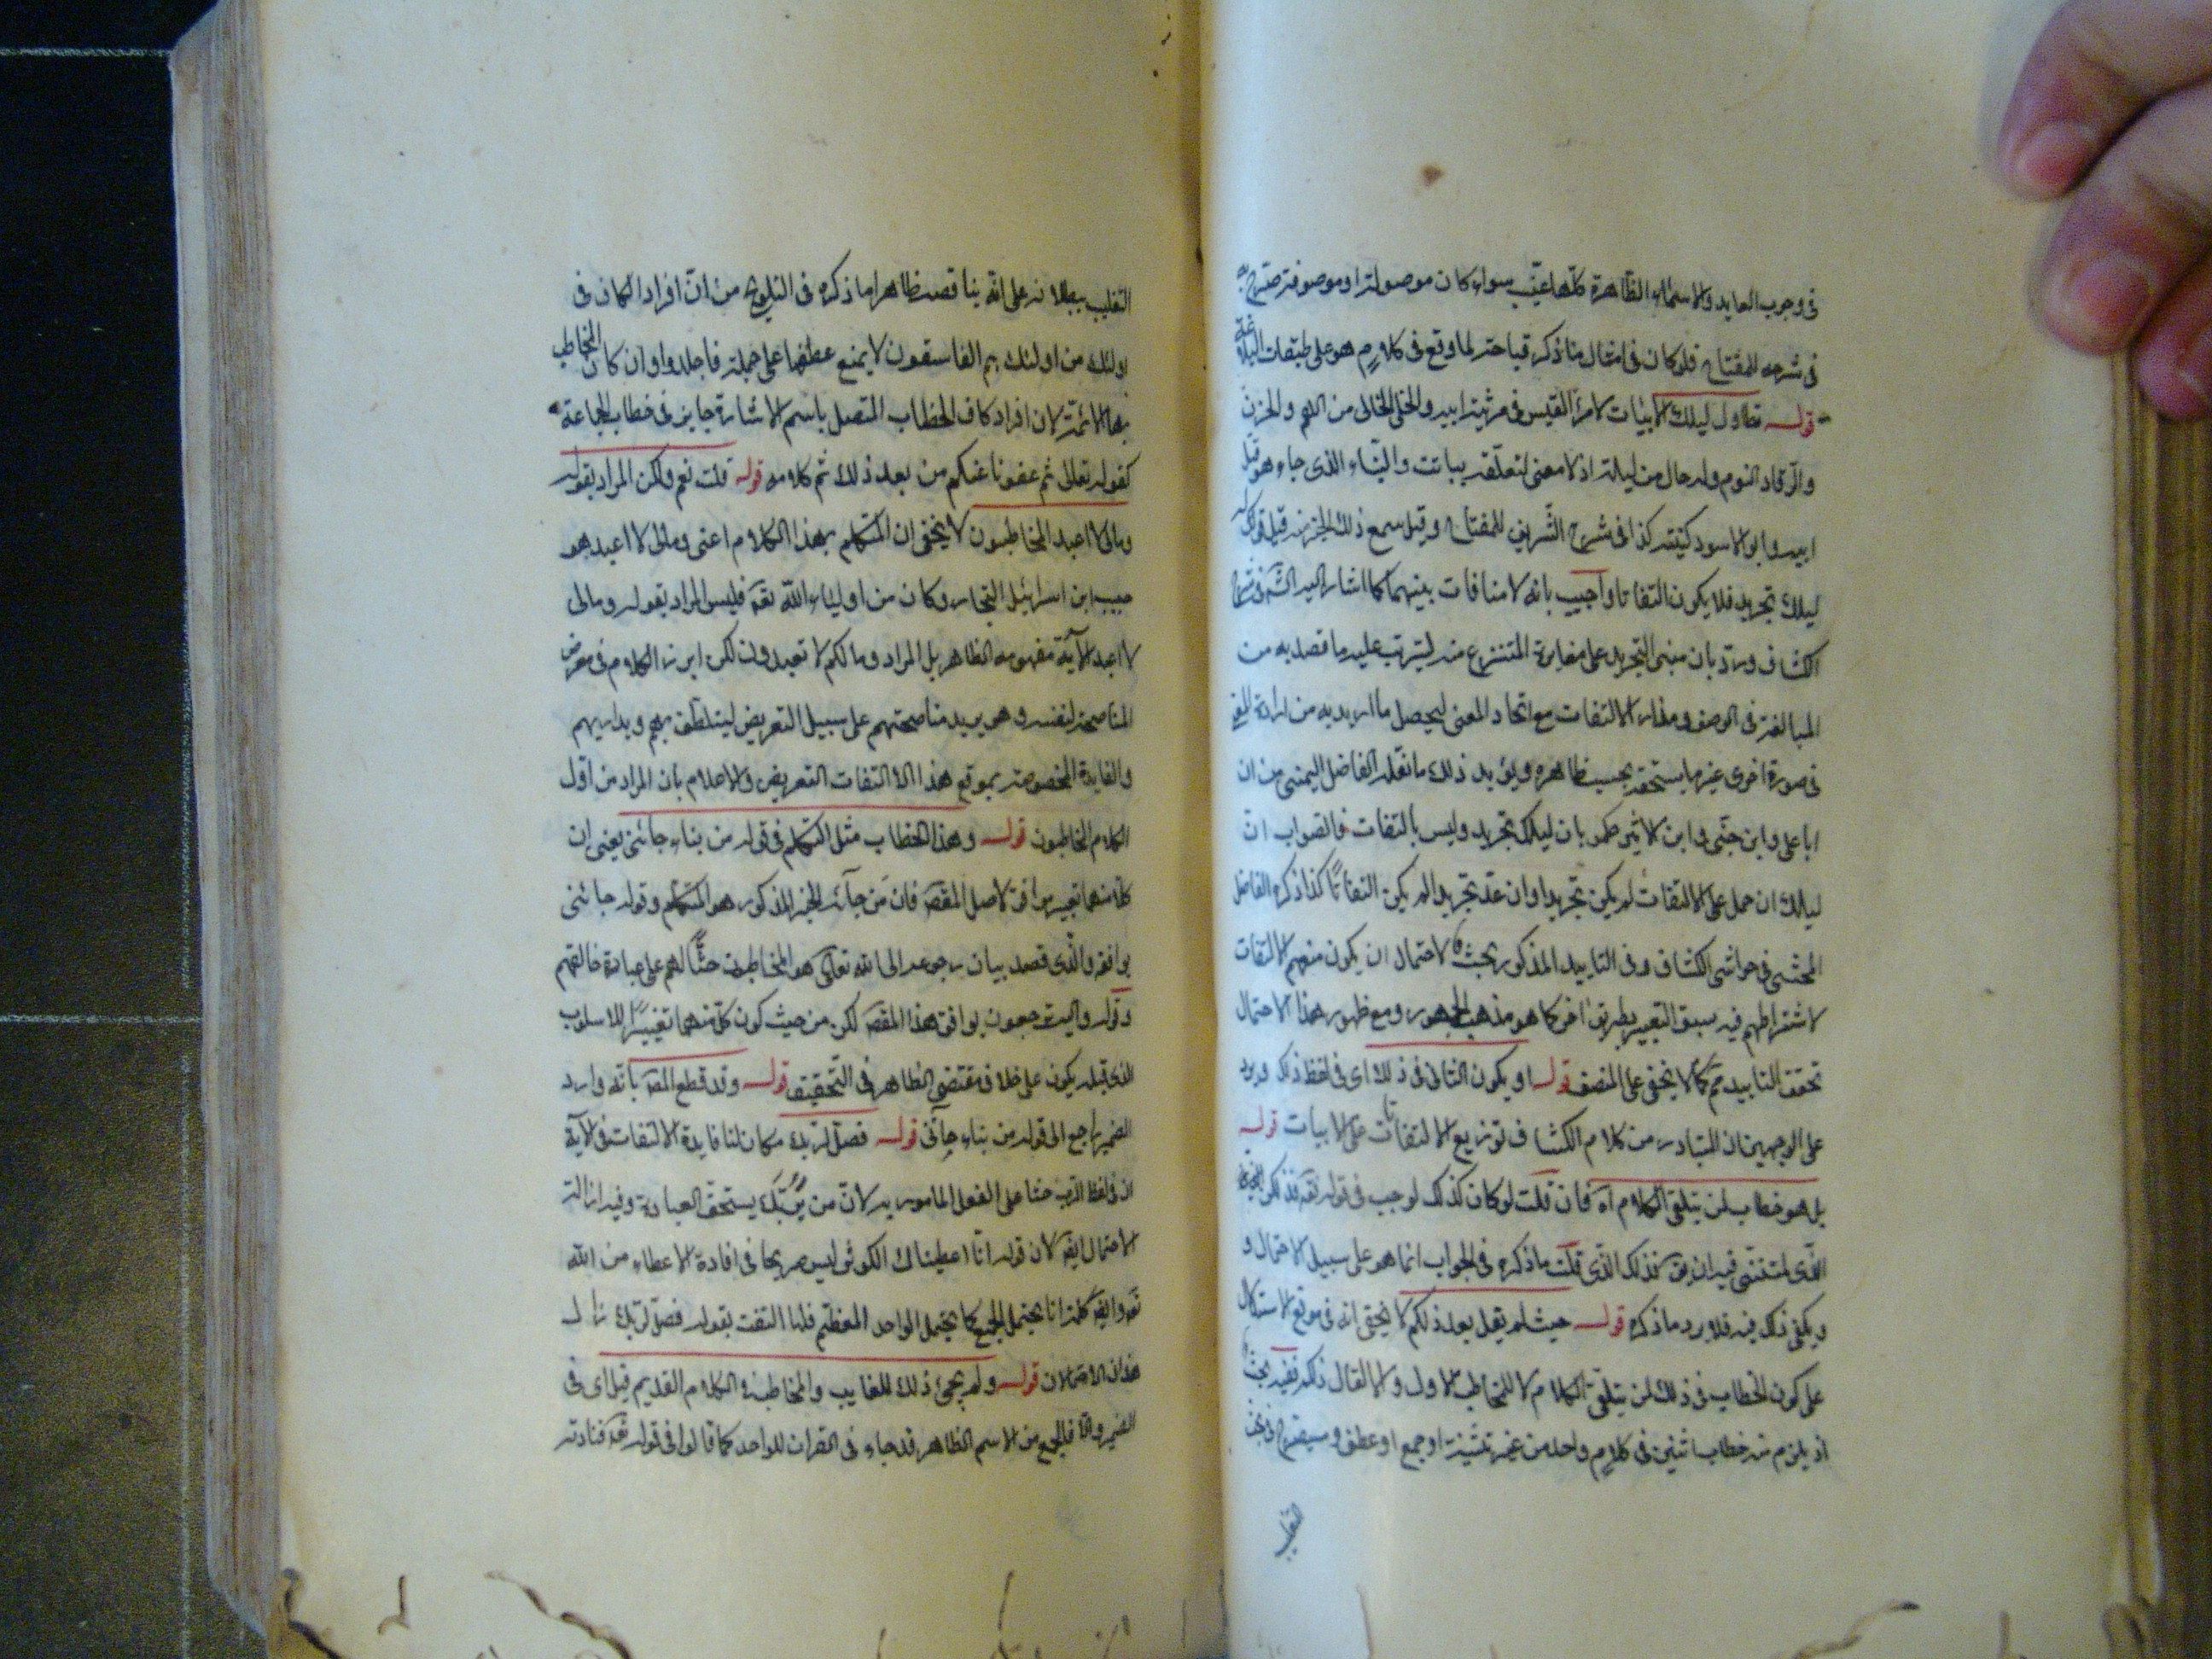 في وجوب العايد والاسماء الظاهرة كلها غيب سواء كان موصولة او موصوفة صرح به
في شرحه للمفتاح فلو كان في امثال ما ذكر قباحة لما وقع في كلام هو على طبقات البلاغة
قوله تطاول ليلك الابيات لامرء القيس في مرثية ابيه والخلي الخالي من الهم والحزن
والرقاد النوم وله حال من ليلة اذ لا معنى لتعلقه بباتت والنباء الذي جاءه هو قتل
ابيه وابو الاسود كنيته كذا في شرح الشريف للمفتاح وقيل سمع ذلك الخبر فيه قيل قوله
ليلك تجريد فلا يكون التفاتا واجيب بانه لا منافات بينهما كما اشار اليه في شرح
الكشاف ورد بان مبنى التجريد على مغايرة المنتزع منه ليترتب عليه ما قصد به من
المبالغة في الوصف ومدار الالتفات مع اتحاد المعنى ليحصل ما اريد به من ارادة المعنى
في صورة اخرى غير ما يستحقه بحسب ظاهره ويؤيد ذلك ما نقله الفاضل اليمني من ان
ابا علي وابن جني وابن الاثير حكموا بان ليلك تجريد وليس بالتفات فالصواب ان
ليلك ان حمل على الالتفات لم يكن تجريدا وان عد تجريدا لم يكن التفاتا كذا ذكره الفاضل
المحشي في حواشي الكشاف وفي التاييد المذكور بحث لاحتمال ان يكون منهم الالتفات
لاشتراطهم فيه سبق التعبير بطريق اخر كما هو مذهب الجمهور ومع ظهور هذا الاحتمال
تحقق التاييد مم كما لا يخفى على المنصف قوله او يكون الثاني في ذلك اي في لفظ ذلك ويرد
على الوجهين ان المتبادر من كلام الكشاف توزيع الالتفاتات على الابيات قوله
بل هو خطاب لمن يتلقى الكلام اه فان قلت لو كان كذلك لوجب في قوله تعه فذلكن
الذي لمتنني فيه ان يقه فذلك الذي قلت ما ذكره في الجواب انما هو على سبيل الاحتمال و
ويكفي ذلك فيه فلا يرد ما ذكره قوله حيث لم يقل بعد ذلكم لا يخفى انه في موقع الاستدلال
على كون الخطاب في ذلك لمن يتلقى الكلام لا للمخاطب الاول والا لقال ذلكم ففيه بحث
اذ يلزم منه خطاب اثنين في كلام واحد من غير تثنية او جمع او عطف وسيصرح في بحث
التغليب
التغليب ببطلانه على انه يناقض ظاهرا ما ذكره في التلويح من ان افراد الكاف في
اولئك من اولئك هم الفاسقون لا يمنع عطفها على جملة فاجلدوا وان كان المخاطب
بها الائمة لان افراد كاف الخطاب المتصل باسم الاشارة جايز في خطاب الجماعة
كقوله تعالى ثم عفونا عنكم من بعد ذلك ثم كلامه قوله قلت نعم ولكن المراد بقوله
ومالي لا اعبد المخاطبون لا يخفى ان المتكلم بهذا الكلام اعني ومالي لا اعبد هو
حبيب ابن اسرائيل النجار وكان من اولياء الله تعه فليس المراد بقوله ومالي
لا اعبد الآية مفهومه الظاهر بل المراد ومالكم لا تعبدون لكن ابرز الكلام في معرض
المناصحة لنفسه وهو يريد مناصحتهم على سبيل التعريض ليتلطف بهم ويداريهم
والفايدة المخصوصة بموقع هذا الالتفات التعريض والاعلام بان المراد من اول
الكلام المخاطبون قوله وهذا الخطاب مثل التكلم في قوله من نباء جائني يعني ان
كلا منهما تعبير موافق لاصل المقصه فان من جآئه الخبر المذكور هو المتكلم وقوله جائني
يوافقه والذي قصد بيان رجوعه الى الله تعالى هو المخاطبون حثا لهم على عبادة خالقهم
وقوله واليه ترجعون يوافق هذا المقصه لكن من حيث كون كل منهما تغييرا للاسلوب
الذي قبله يكون على خلاف مقتضى الظاهر في التحقيق قوله وقد قطع المصه بانه وارد
الضمير راجع الى قوله من نباء جآئني قوله فصل لربك مكان لنا فايدة الالتفات في الآية
ان في لفظ الرب حثا على الفعل المامور به لان من يربك يستحق العبادة وفيه ازالة
الاحتمال ايضه لان قوله انا اعطيناك الكوثر ليس صريحا في افادة الاعطاء من الله
تعه وايضه كلمة انا يحتمل الجمع كما يحتمل الواحد المعظم فلما التفت بقوله فصل لربك زال
هذان الاحتمالان قوله ولم يجئ ذلك للغايب والمخاطب في الكلام القديم قيل اي في
الضمير والا فالجمع من الاسم الظاهر قد جاء في القران للواحد كما قالوا في قوله تعه فنادته